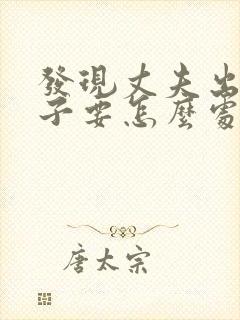 發現丈夫出
子要怎麼處
唐太宗